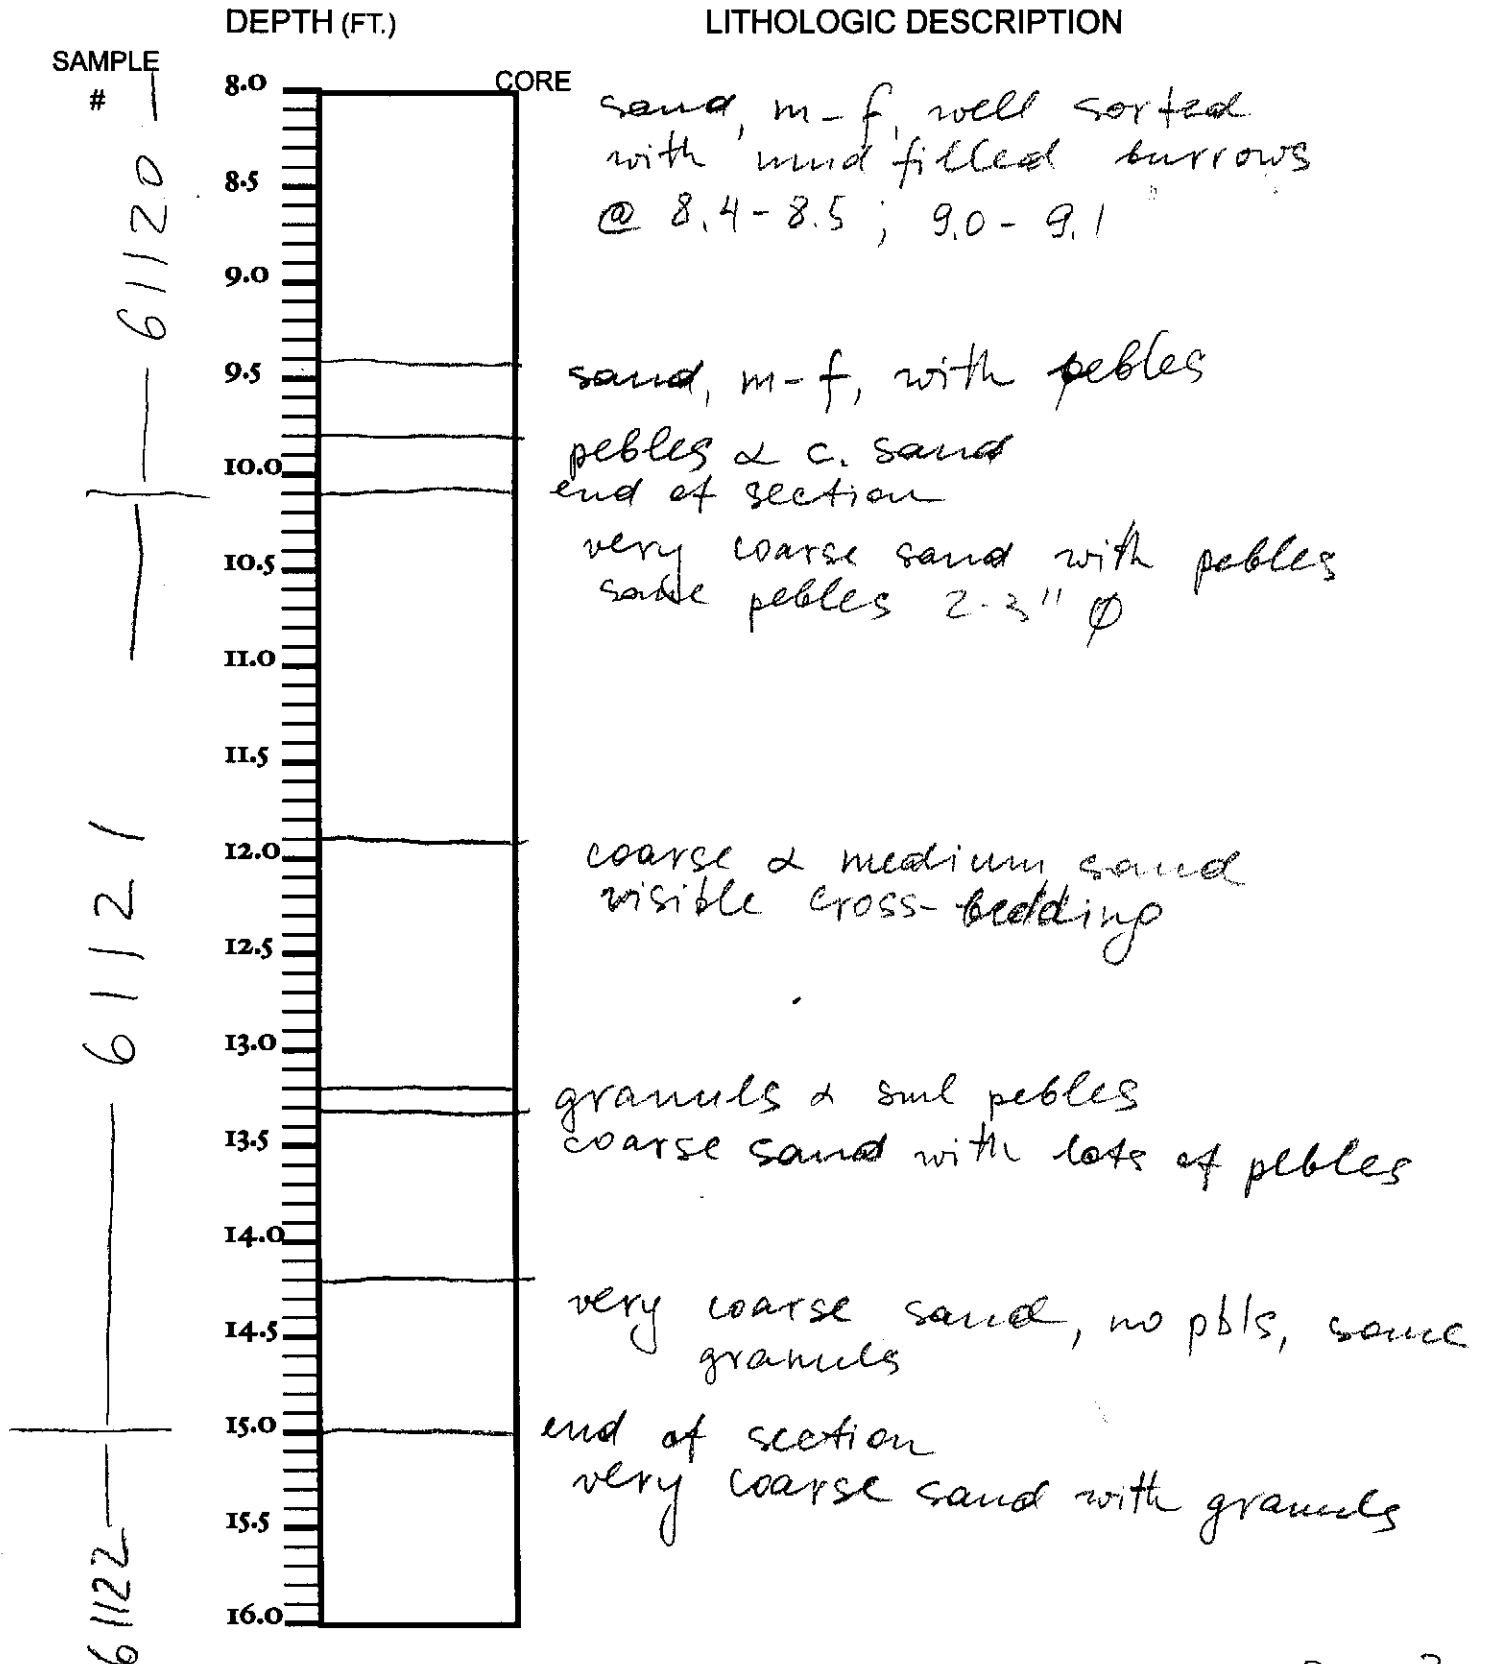 DEPTH (FT.)
LITHOLOGIC DESCRIPTION
SAMPLE
#
CORE
8.0
8.5
9.0
9.5
10.0
10.5
11.0
11.5
12.0
12.5
13.0
13.5
14.0
14.5
15.0
15.5
16.0
61120
61121
61122
sand, m-f, well sorted
with mud filled burrows
@ 8.4-8.5; 9.0-9.1
sand, m-f, with pebles
pebles & c. sand
end of section
very coarse sand with pebles
some pebles 2-3" ϕ
coarse & medium sand
visible cross-bedding
granuls & sml pebles
coarse sand with lots of pebles
very coarse sand, no pbls, some
granuls
end of section
very coarse sand with granuls